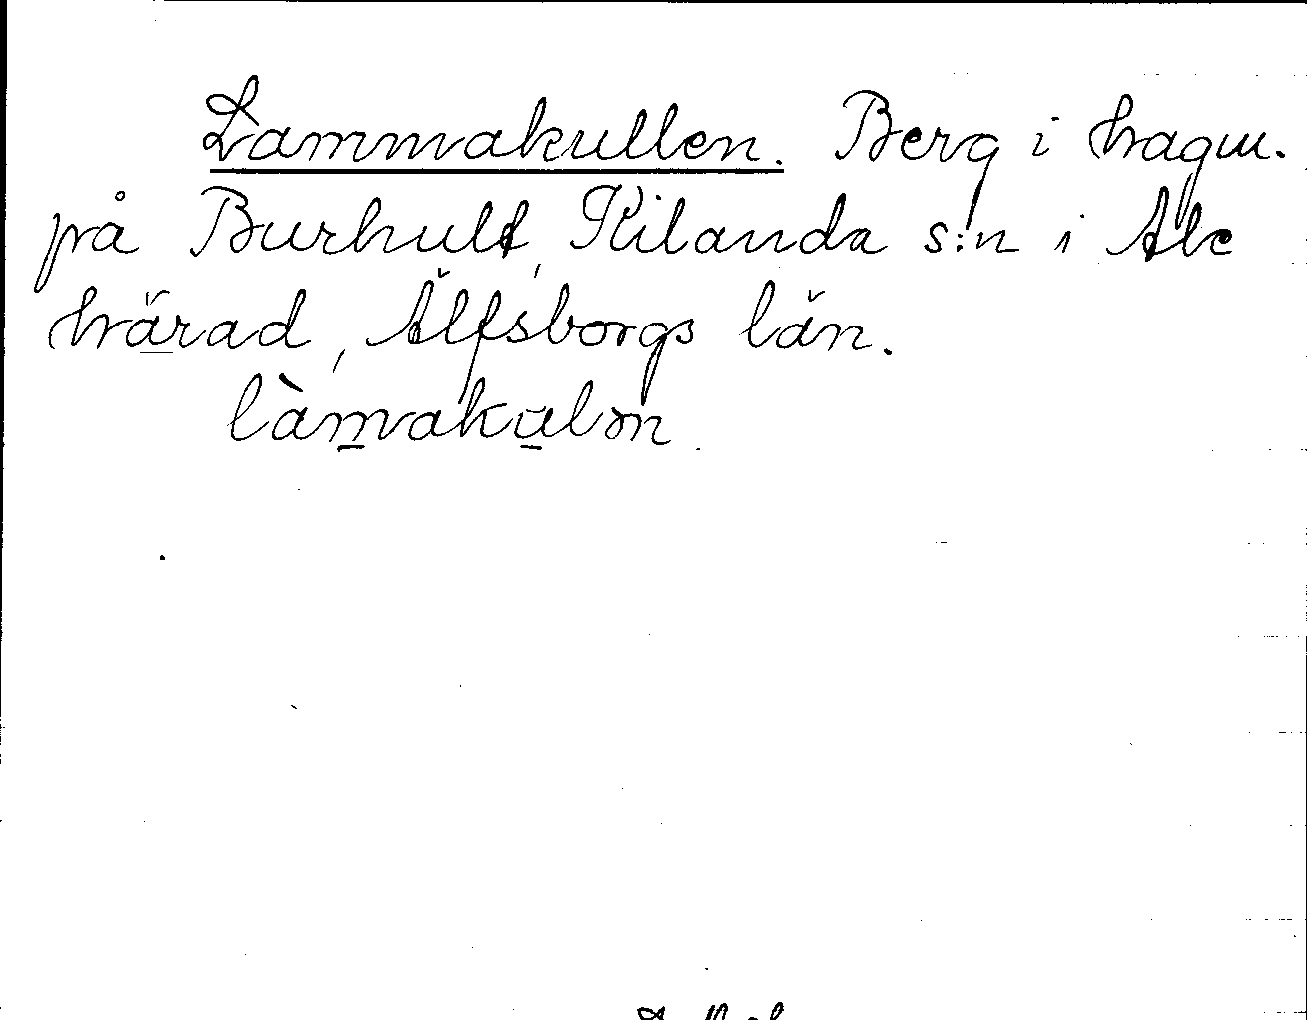 Lammakullen. Berg i hagm.
på Burhult, Kilanda s:n i Ale
härad, Älfsborgs län.
làmakulən